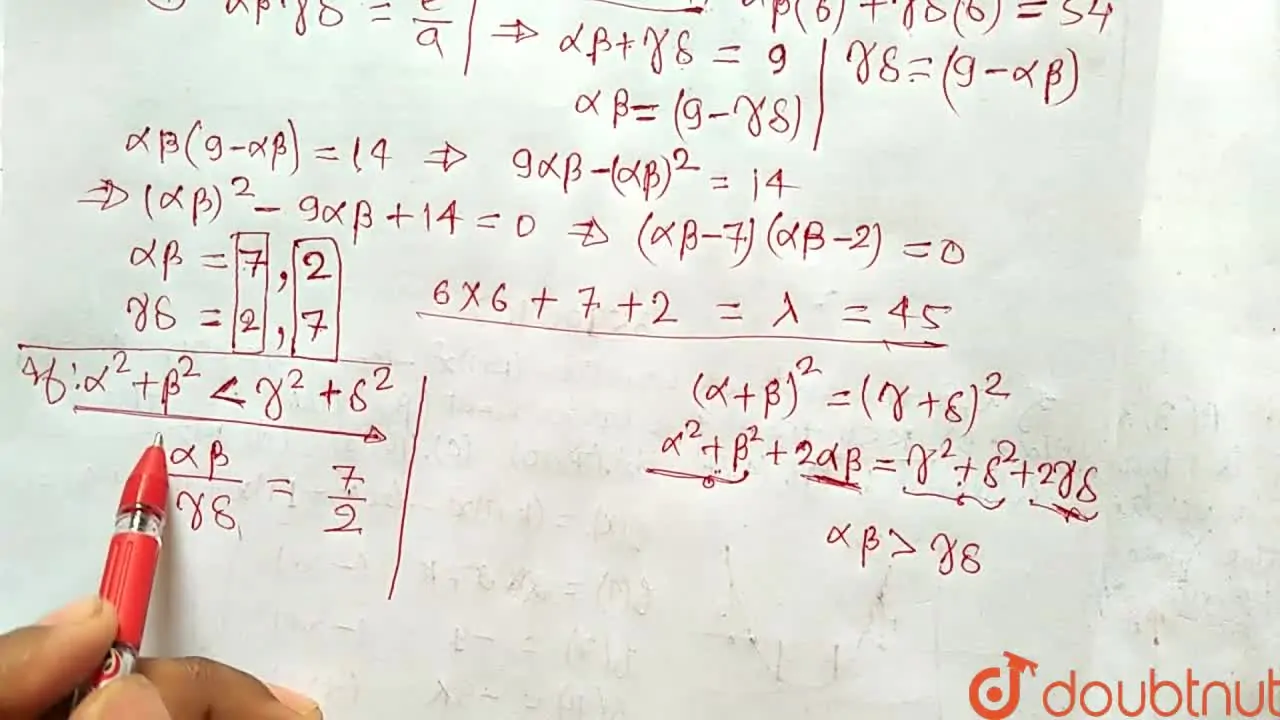 αβγδ = e/a
αβ(6) + γδ(6) = 54
⇒ αβ + γδ = 9
γδ = (9 - αβ)
αβ = (9 - γδ)
αβ(9 - αβ) = 14 ⇒ 9αβ - (αβ)² = 14
⇒ (αβ)² - 9αβ + 14 = 0 ⇒ (αβ - 7)(αβ - 2) = 0
αβ = 7, 2
γδ = 2, 7
6 × 6 + 7 + 2 = λ = 45
If: α² + β² < γ² + δ²
αβ/γδ = 7/2
(α + β)² = (γ + δ)²
α² + β² + 2αβ = γ² + δ² + 2γδ
αβ > γδ
doubtnut